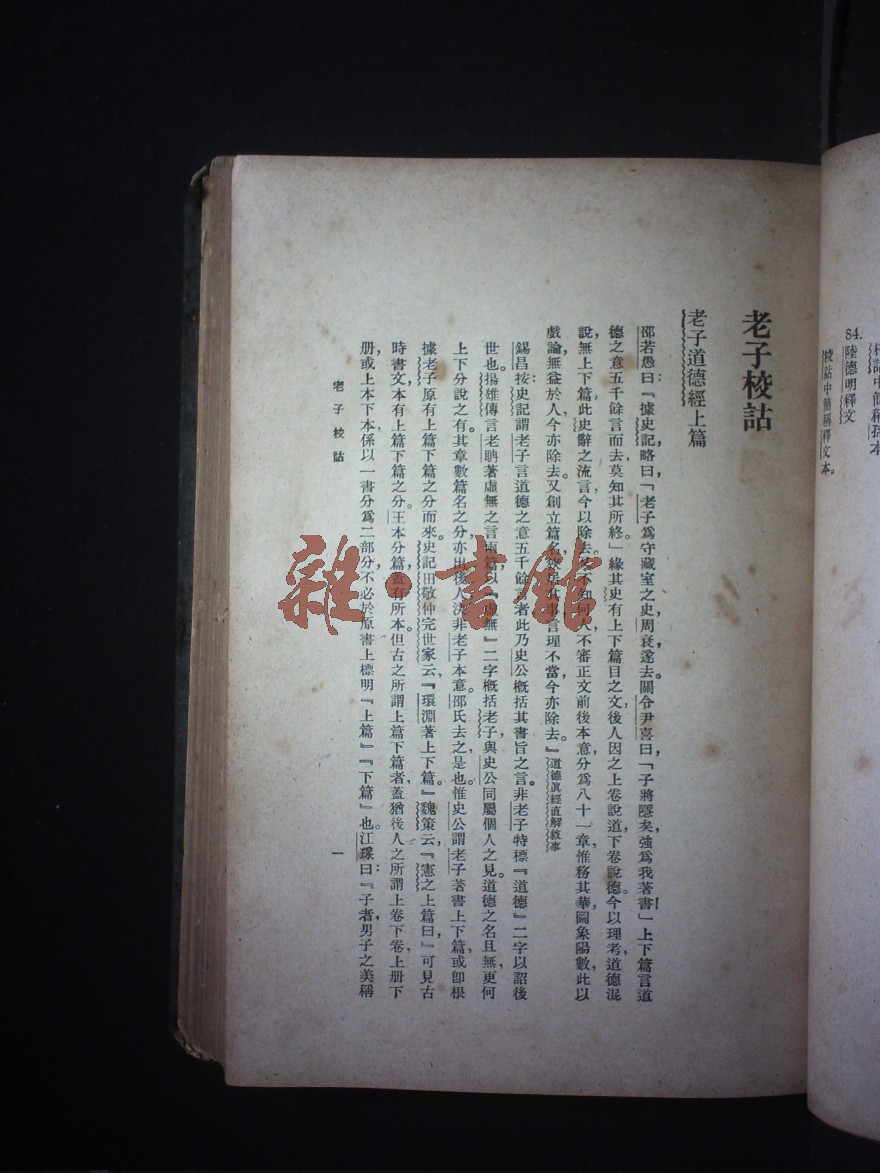 84.
陸德明釋文
校詁中簡稱釋文本。
老子校詁
老子道德經上篇
邵若愚曰：『據史記略曰：「老子爲守藏室之史，周衰，遂去。關令尹喜曰：「子將隱矣，強爲我著書」上下篇，言道
德之意五千餘言而去，莫知其所終。」緣其史有上下篇目之文，後人因之上卷說道，下卷說德。今以理考，道德混
說，無上下篇，此史辭之流言，今以除去。又不知何人不審正文前後本意，分爲八十一章，惟務其華圖象陽數，此以
戲論，無益於人，今亦除去。又創立篇名，言理不當，今亦除去。』道德眞經直解敘事
錫昌按：史記謂老子言道德之意五千餘言者，此乃史公概括其書旨之言。非老子特標『道德』二字以詔後
世也。揚雄傳言老聃著虛無之言兩篇，以『虛無』二字概括老子，與史公同屬個人之見。道德之名且無，更何
上下分說之有。其章數篇名之分，亦出後人，決非老子本意。邵氏去之，是也。惟史公謂老子著書上下篇，或卽根
據老子原有上篇下篇之分而來。史記田敬仲完世家云，『環淵著上下篇。』魏策云，『憲之上篇曰，』可見古
時書文本有上篇下篇之分。王本分篇，蓋有所本。但古之所謂上篇下篇者，蓋猶後人之所謂上卷下卷，上册下
册，或上本下本，係以一書分爲二部分，不必於原書上標明『上篇』『下篇』也。江瑔曰：『子者，男子之美稱，
老子校詁
一
雜·書館